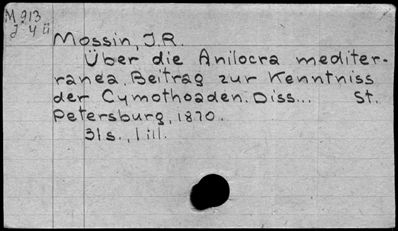 M 213
J 4 ü
Mossin, J.R.
Über die Anilocra mediter-
ranea. Beitrag zur Kenntniss
der Cymothoaden. Diss... St.
Petersburg, 1870.
31s., 1 ill.